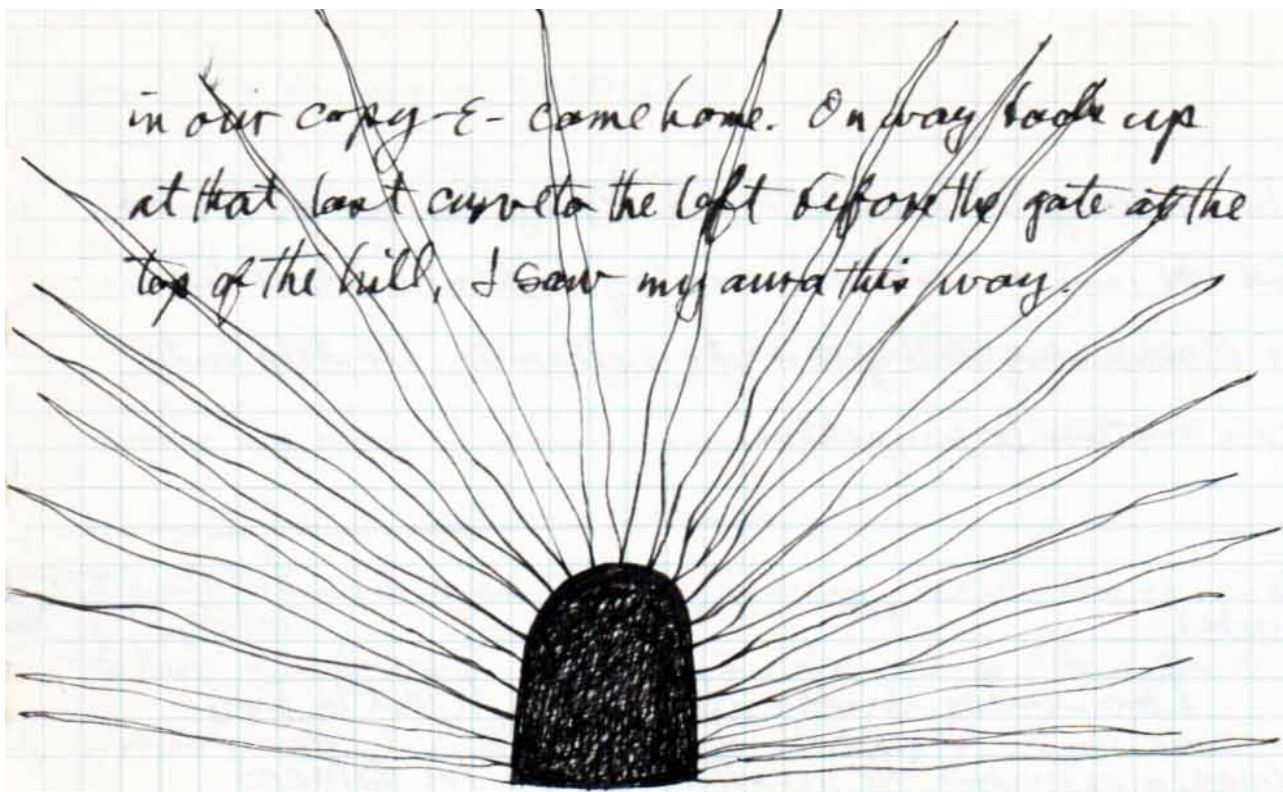 in our copy -&- came home. On way back up
at that last curve to the left before the gate at the
top of the hill, I saw my aura this way.